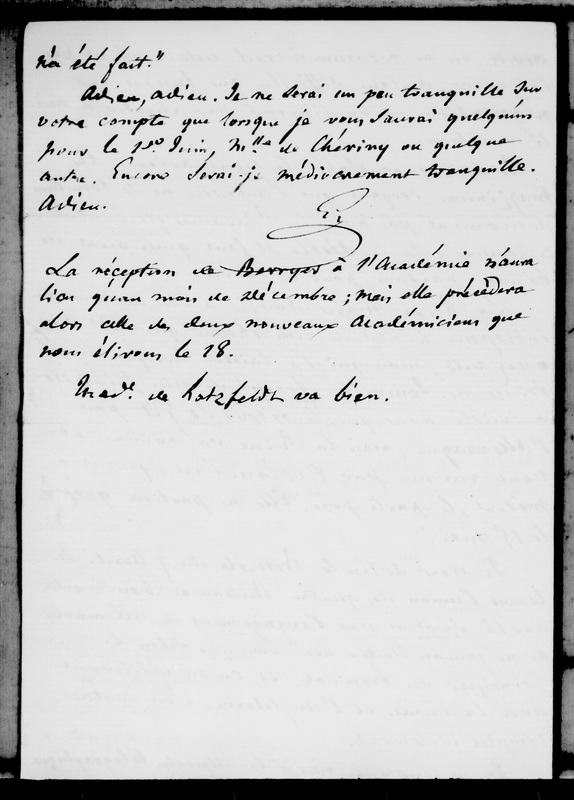 n'a été fait."
Adieu, adieu. Je ne serai un peu tranquille sur
votre compte que lorsque je vous saurai quelqu'un
pour le 1er Juin, Mlle de Chériny ou quelque
autre. Encore serai-je médiocrement tranquille.
Adieu.
La réception de Berryer à l'Académie n'aura
lieu qu'au mois de Décembre ; mais elle précèdera
alors celle des deux nouveaux Académiciens que
nous élirons le 18.
Mad. de Hatzfeldt va bien.